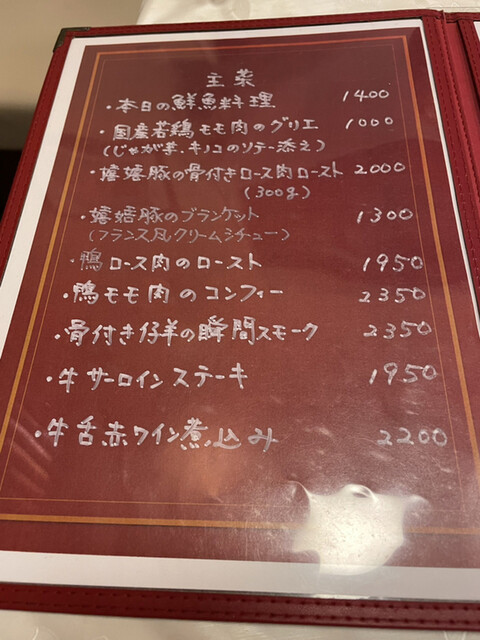 主菜
・本日の鮮魚料理 1400
・国産若鶏モモ肉のグリエ 1000
(じゃが芋、キノコのソテー添え)
・嬉嬉豚の骨付きロース肉ロースト 2000
(300g)
・嬉嬉豚のブランケット 1300
(フランス風クリームシチュー)
・鴨ロース肉のロースト 1950
・鴨モモ肉のコンフィー 2350
・骨付き仔羊の瞬間スモーク 2350
・牛サーロインステーキ 1950
・牛舌赤ワイン煮込み 2200